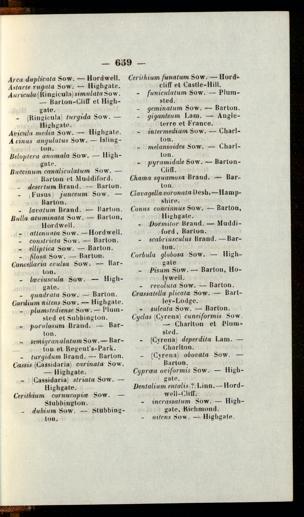 — 659 —
Arca duplicata Sow. — Hordwell.
Astarte rugata Sow. — Highgate.
Auricula (Ringicula) simulata Sow.
— Barton-Cliff et High-
gate.
- (Ringicula) turgida Sow. —
Highgate.
Avicula media Sow. — Highgate.
Axinus angulatus Sow. — Isling-
ton.
Beloptera anomala Sow. — High-
gate.
Buccinum canaliculatum Sow. —
Barton et Muddiford.
- desertum Brand. — Barton.
- (Fusus) junceum Sow. —
Barton.
- lavatum Brand. — Barton.
Bulla acuminata Sow. — Barton,
Hordwell.
- attenuata Sow. — Hordwell.
- constricta Sow. — Barton.
- elliptica Sow. — Barton.
- filosa Sow. — Barton.
Cancellaria evulsa Sow. — Bar-
ton.
- læviuscula Sow. — High-
gate.
- quadrata Sow. — Barton.
Cardium nitens Sow. — Highgate.
- plumstedianse Sow. — Plum-
sted et Stubbington.
- porulosum Brand. — Bar-
ton.
- semigranulatum Sow. — Bar-
ton et Regent's-Park.
- turgidum Brand. — Barton.
Cassis (Cassidaria) carinata Sow.
— Highgate.
- (Cassidaria) striata Sow. —
Highgate.
Cerithium cornucopiæ Sow. —
Stubbington.
- dubium Sow. — Stubbing-
ton.
Cerithium funatum Sow. — Hord-
cliff et Castle-Hill.
- funiculatum Sow. — Plum-
sted.
- geminatum Sow. — Barton.
- giganteum Lam. — Angle-
terre et France.
- intermedium Sow. — Charl-
ton.
- melanioides Sow. — Charl-
ton.
- pyramidale Sow. — Barton-
Cliff.
Chama squamosa Brand. — Bar-
ton.
Clavagella coronata Desh. — Hamp-
shire.
Conus concinnus Sow. — Barton,
Highgate.
- Dormitor Brand. — Muddi-
ford, Barton.
- scabriusculus Brand. — Bar-
ton.
Corbula globosa Sow. — High-
gate
- Pisum Sow. — Barton, Ho-
lywell.
- revoluta Sow. — Barton.
Crassatella plicata Sow. — Bart-
ley-Lodge.
- sulcata Sow. — Barton.
Cyclas (Cyrena) cuneiformis Sow.
— Charlton et Plum-
sted.
- (Cyrena) deperdita Lam. —
Charlton.
- (Cyrena) obovata Sow. —
Barton.
Cypræa oviformis Sow. — High-
gate.
Dentalium entalis ? Linn. — Hord-
well-Cliff.
- incrassatum Sow. — High-
gate, Richmond.
- nitens Sow. — Highgate.